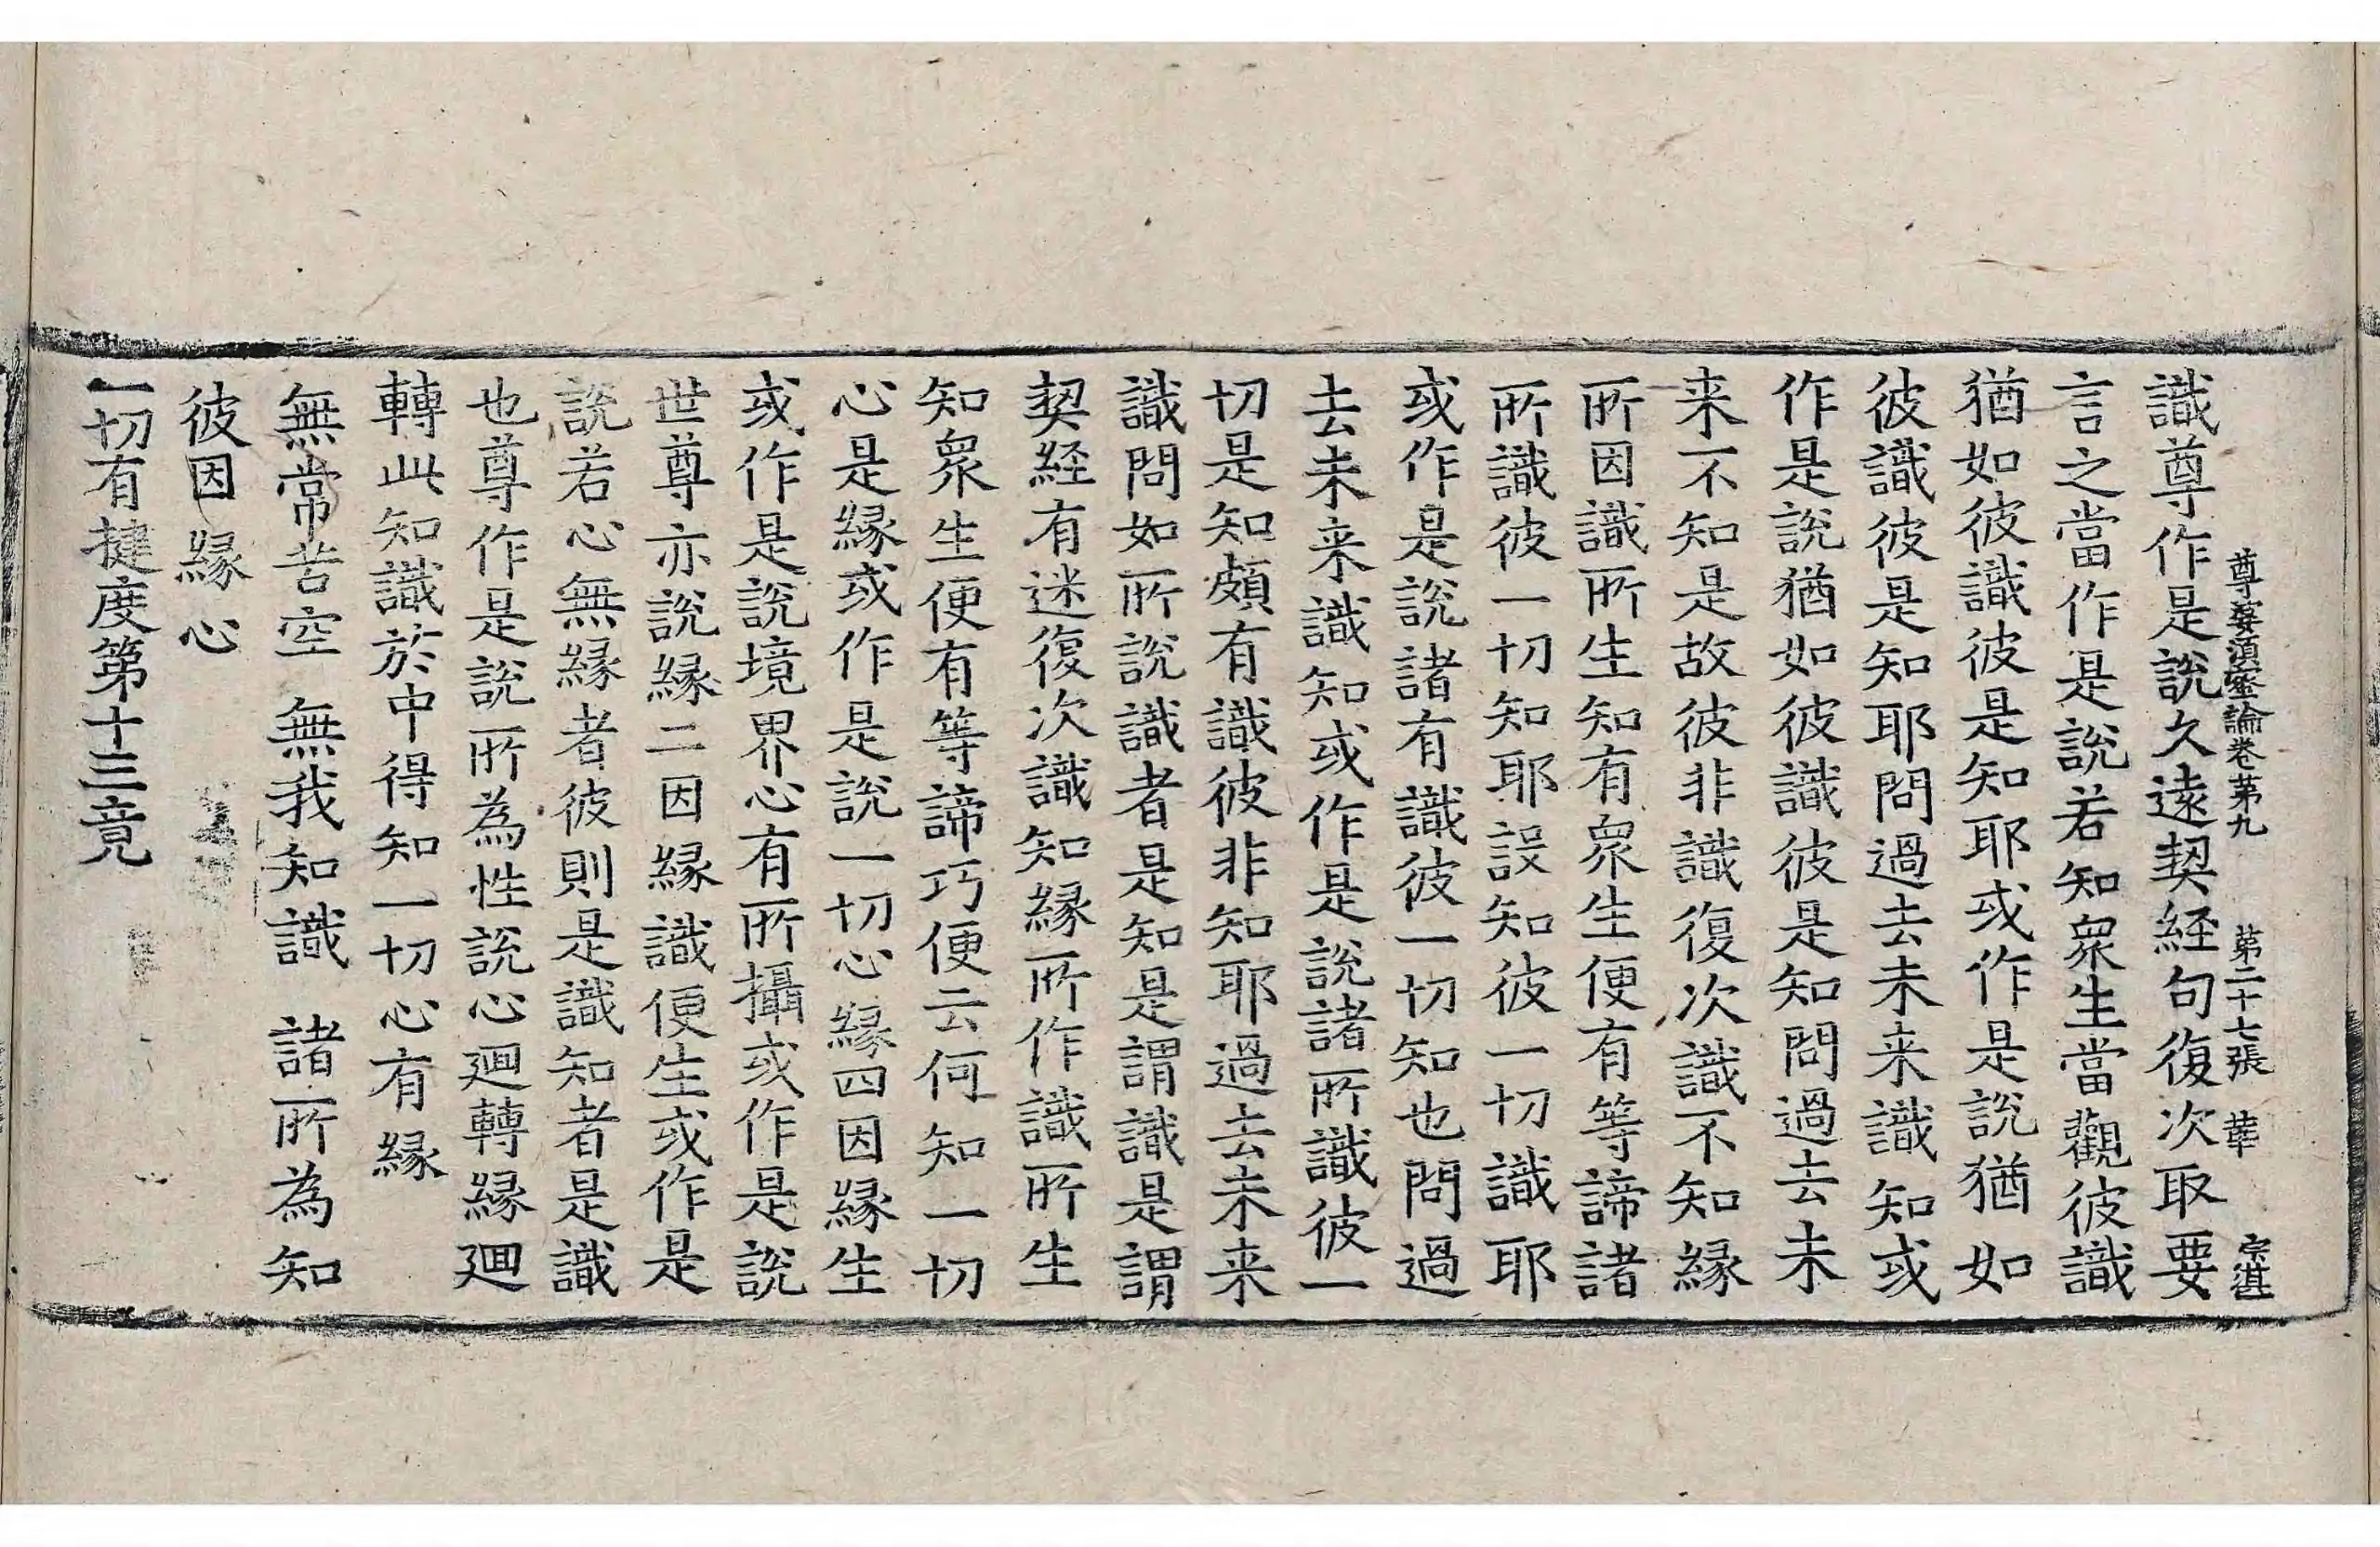 尊婆須蜜論卷苐九 苐二十七張 華 宗湛
識尊作是説久遠契経句復次取要
言之當作是說若知衆生當觀彼識
猶如彼識彼是知耶或作是説猶如
彼識彼是知耶問過去未来識知或
作是説猶如彼識彼是知問過去未
来不知是故彼非識復次識不知緣
所因識所生知有衆生便有等諦諸
所識彼一切知耶設知彼一切識耶
或作是說諸有識彼一切知也問過
去未来識知或作是說諸所識彼一
切是知頗有識彼非知耶過去未来
識問如所說識者是知是謂識是謂
契経有迷復次識知緣所作識所生
知衆生便有等諦巧便云何知一切
心是緣或作是說一切心緣四因緣生
或作是說境界心有所攝或作是說
世尊亦說緣二因緣識便生或作是
説若心無緣者彼則是識知者是識
也尊作是說所為性說心迴轉緣迴
轉此知識於中得知一切心有緣
無常苦空 無我知識 諸所為知
彼因緣心
一切有揵度第十三竟